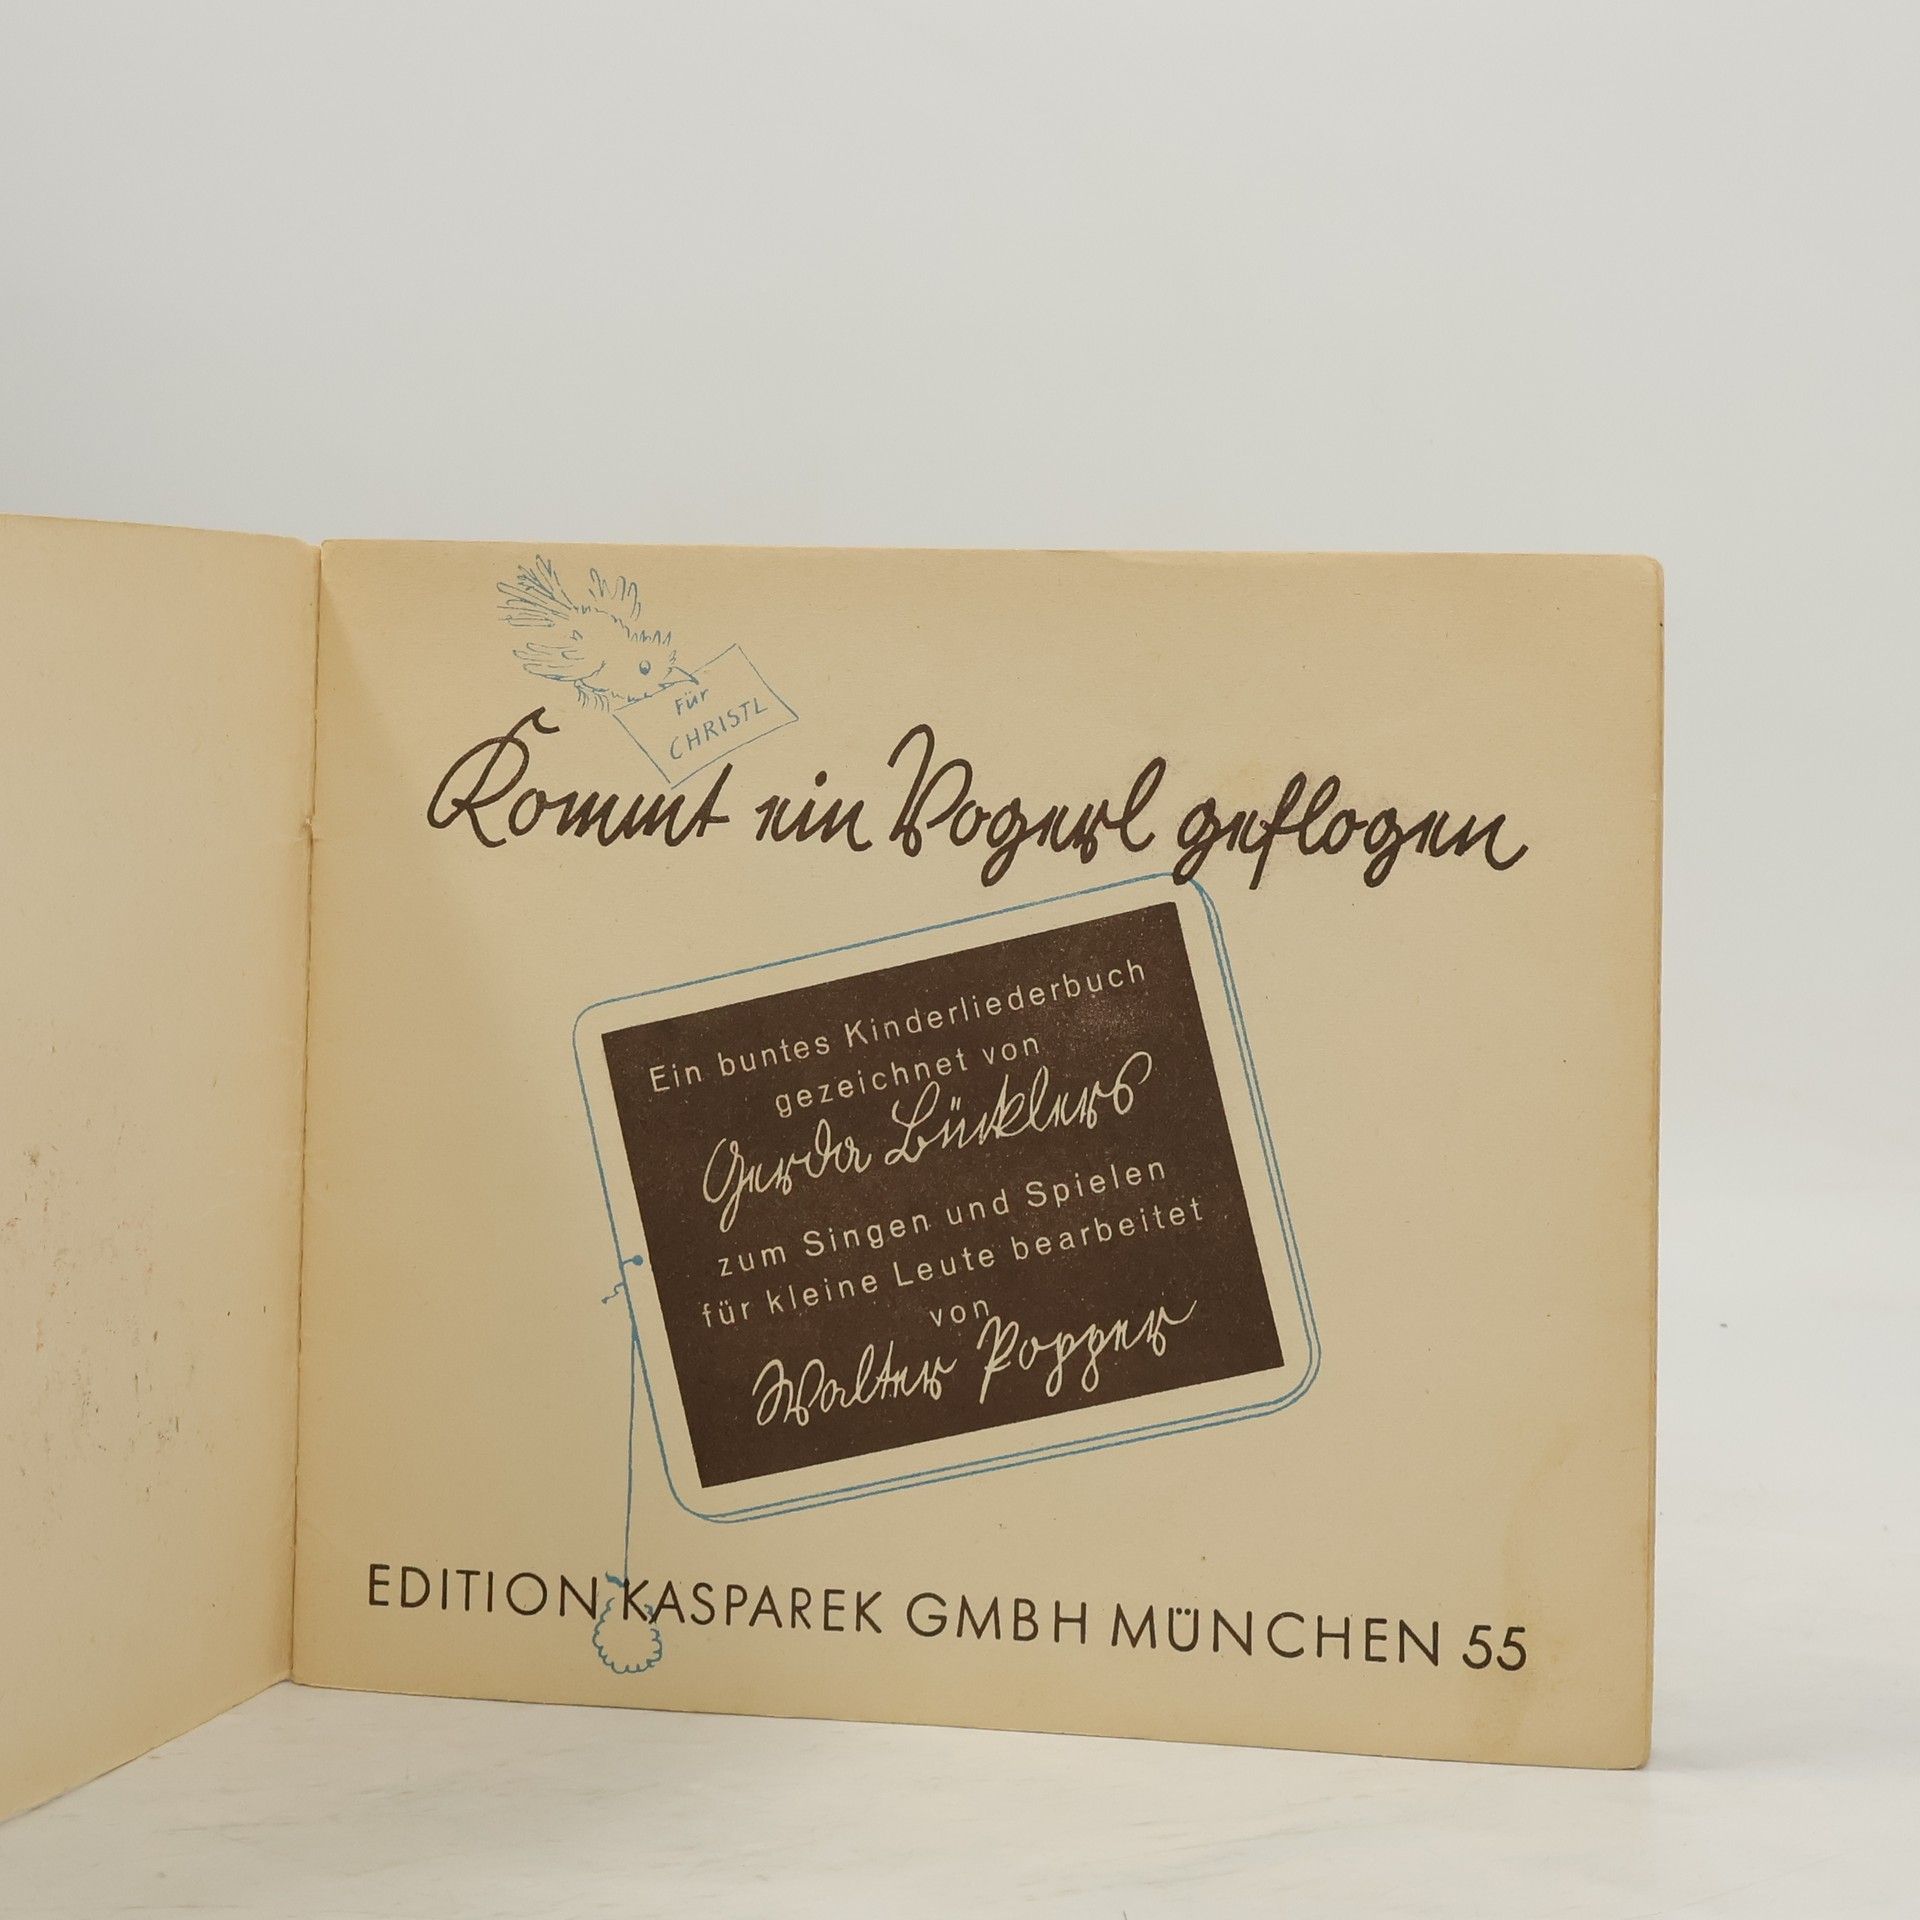 Für
CHRISTL
Kommt ein Vogerl geflogen
Ein buntes Kinderliederbuch
gezeichnet von
Gerda Bücklers
zum Singen und Spielen
für kleine Leute bearbeitet
von
Walter Popper
EDITION KASPAREK GMBH MÜNCHEN 55